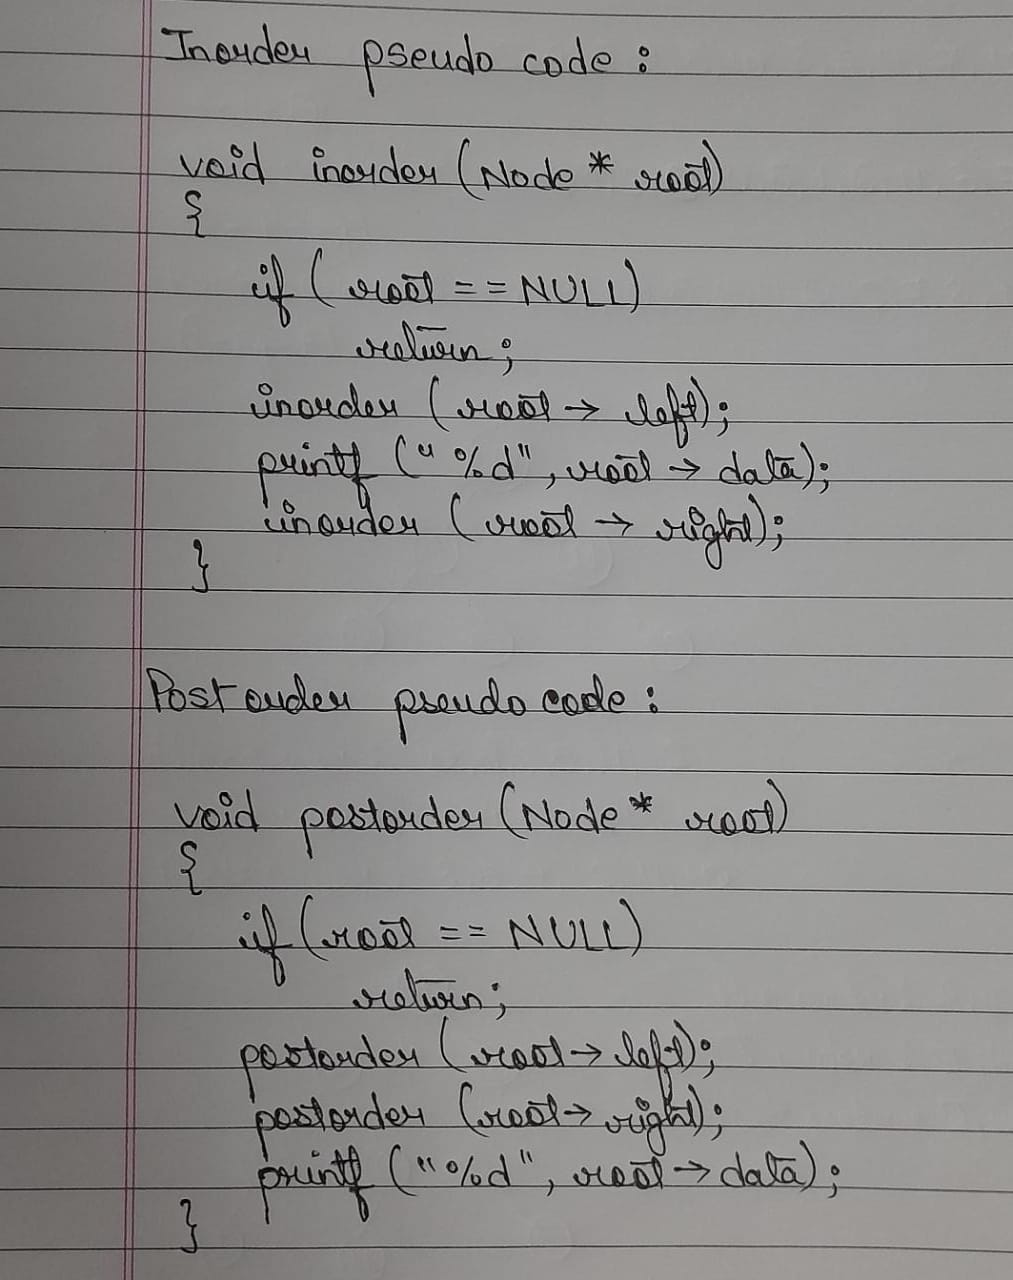 Inorder pseudo code :
void inorder (Node * root)
{
if ( root == NULL)
return ;
inorder ( root → left);
printf (" %d" , root → data);
inorder ( root → right);
}
Postorder pseudo code :
void postorder (Node * root)
{
if (root == NULL)
return ;
postorder ( root → left);
postorder ( root → right);
printf ( "%d" , root → data) ;
}